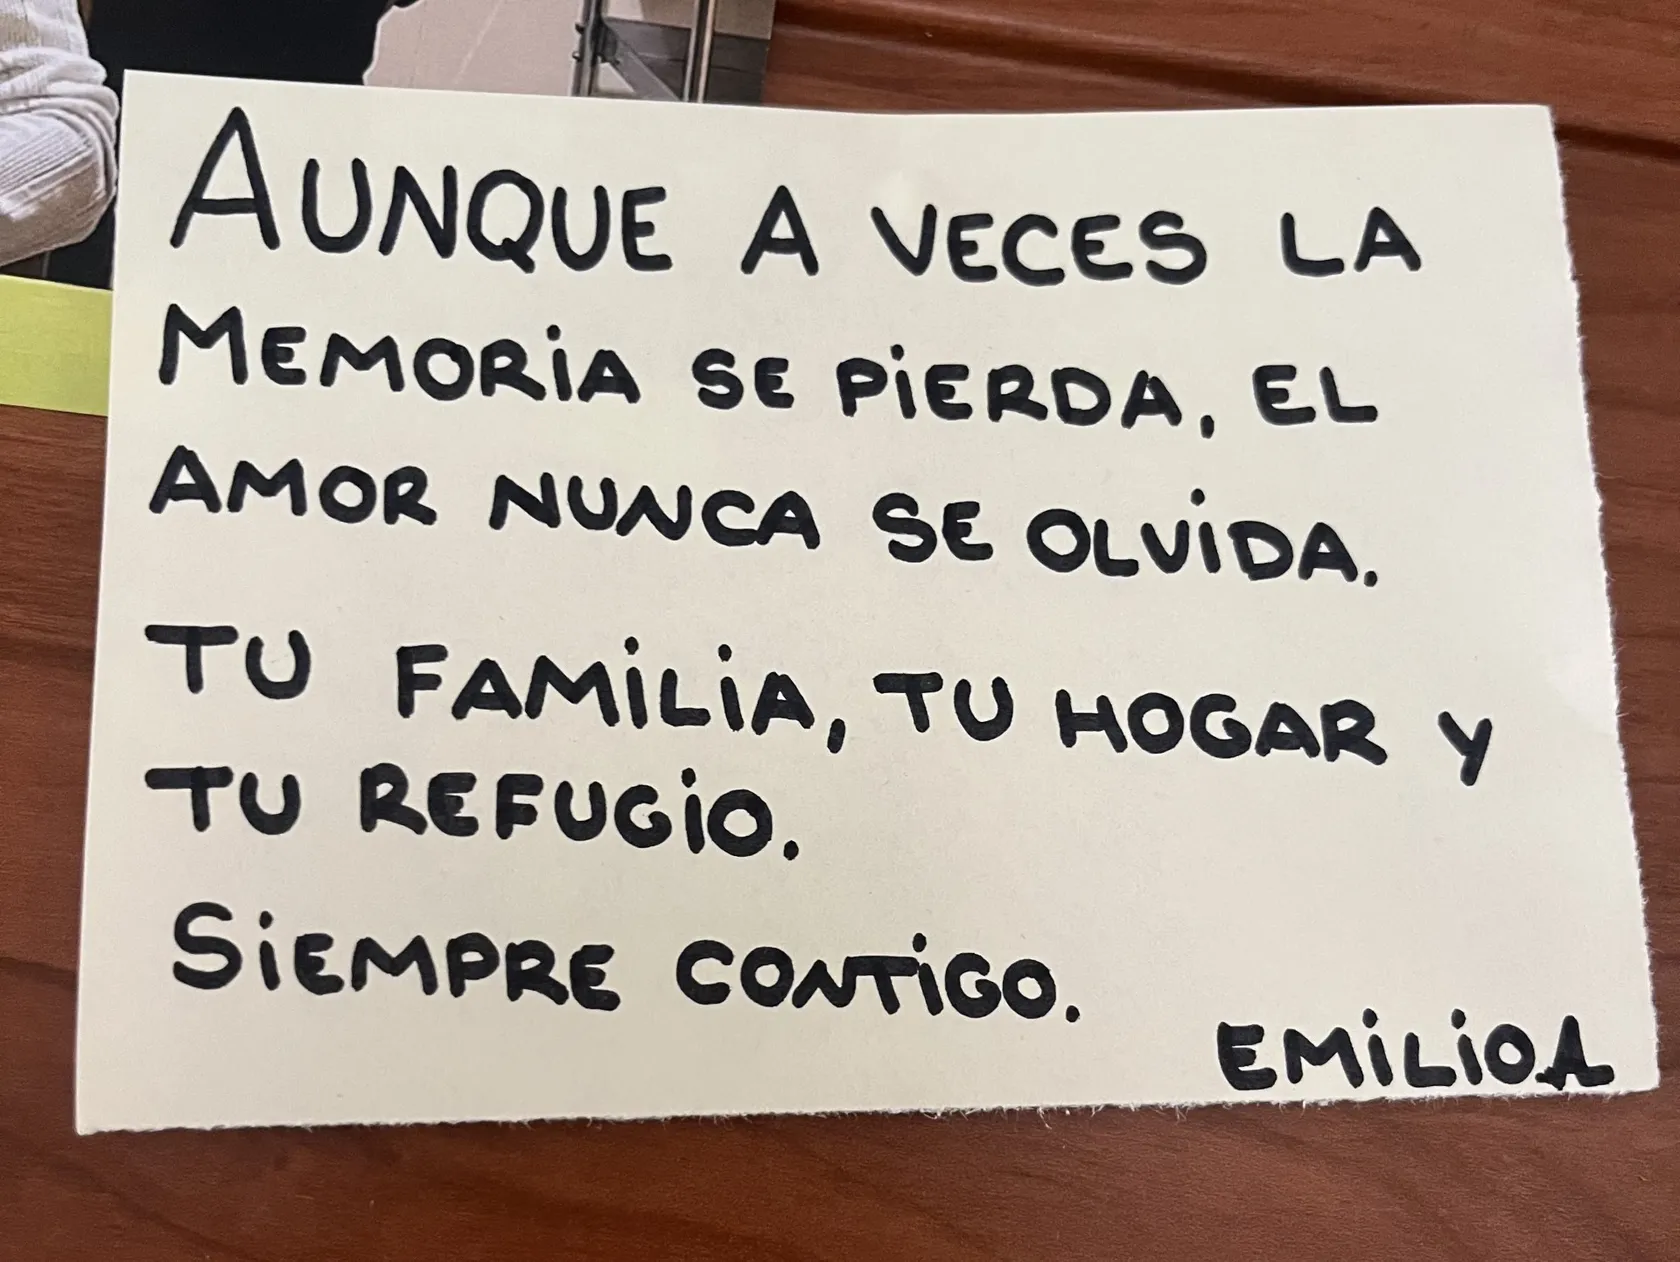 AUNQUE A VECES LA
MEMORIA SE PIERDA, EL
AMOR NUNCA SE OLVIDA.
TU FAMILIA, TU HOGAR Y
TU REFUGIO.
SIEMPRE CONTIGO.
EMILIO.A